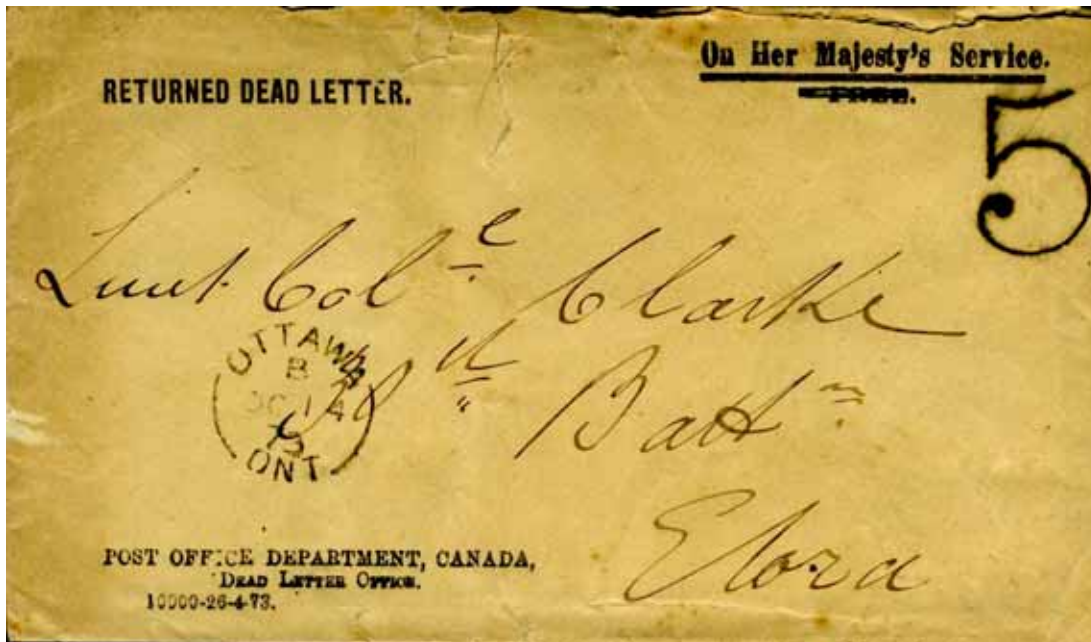 RETURNED DEAD LETTER.
On Her Majesty's Service.
5
Lieut. Col.e Clarke
Battn
Elora
OTTAWA
B
OC 14
ONT
POST OFFICE DEPARTMENT, CANADA,
DEAD LETTER OFFICE.
10000-26-4-73.